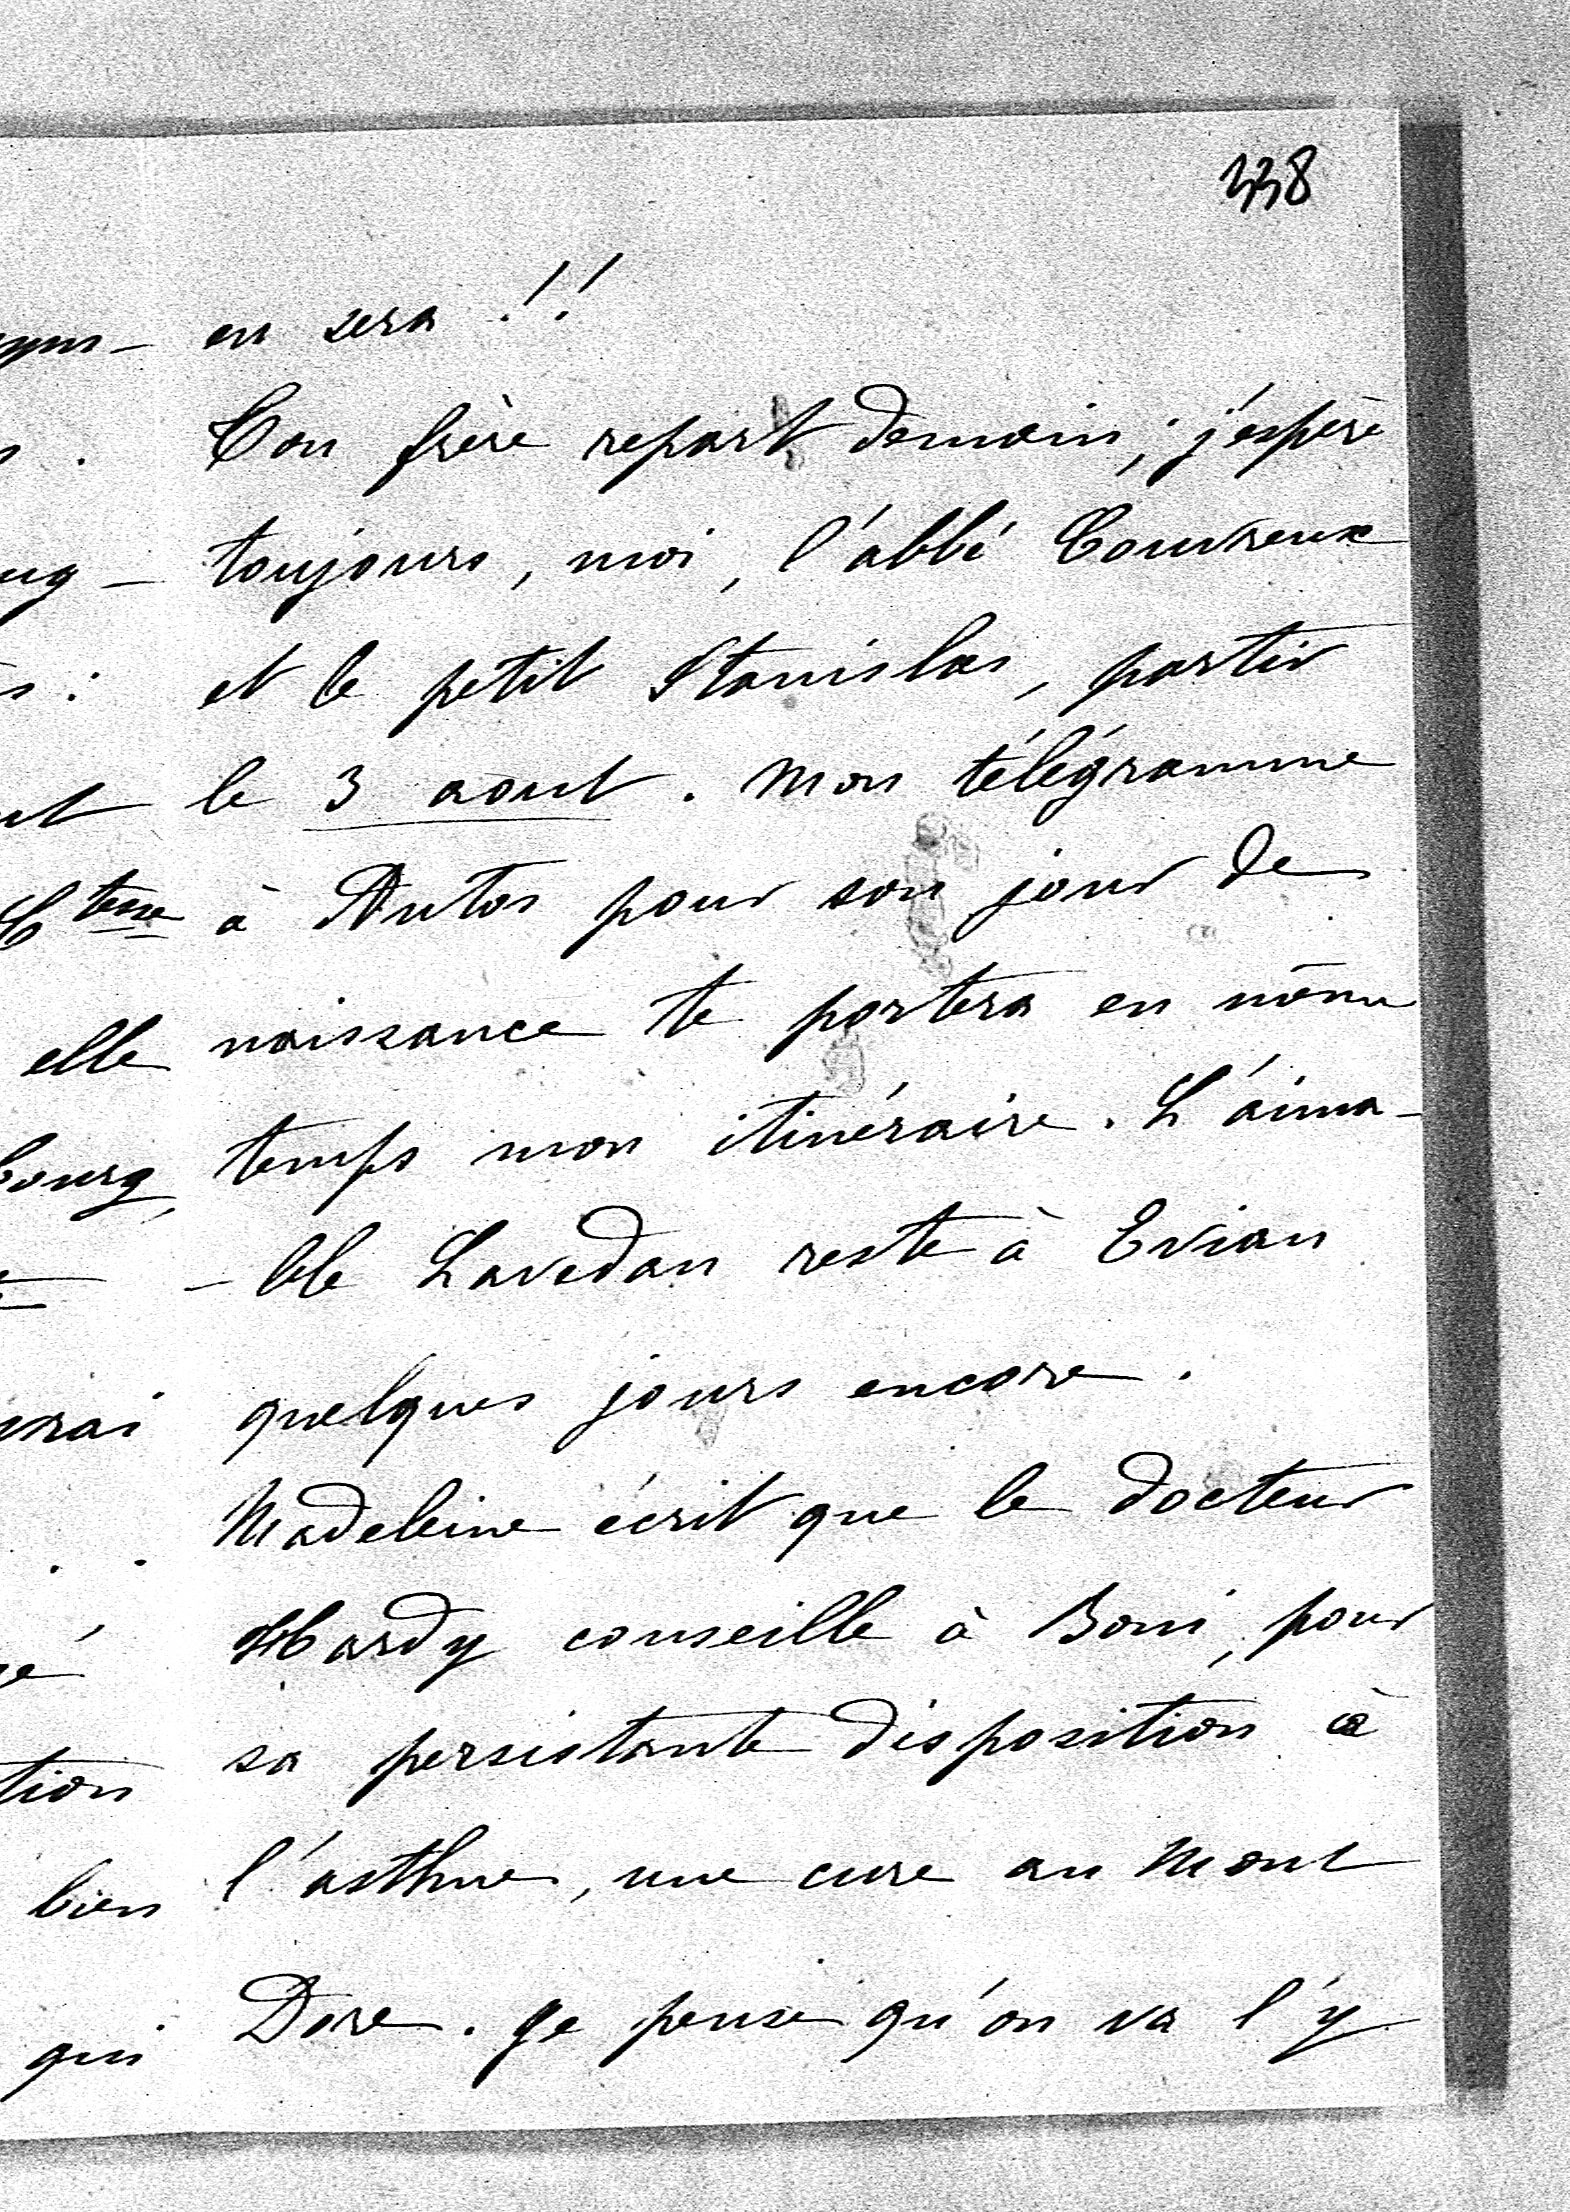 338
en sera !!
Ton frère repart demain ; j'espère
toujours, moi, l'abbé Couvreux
et le petit Stanislas, partir
le 3 aout. Mon télégramme
à Antos pour son jour de
naissance te portera en même
temps mon itinéraire. L'aima-
-ble Lavedan reste à Evian
quelques jours encore.
Madeleine écrit que le docteur
Hardy conseille à Boni, pour
sa persistante disposition à
l'asthme, une cure au Mont
Dore. Je pense qu'on va l'y
Ctesse
elle
bourg,
vrai
tion
bien
qui